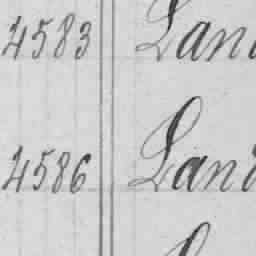 4583 Lan
4586 Land